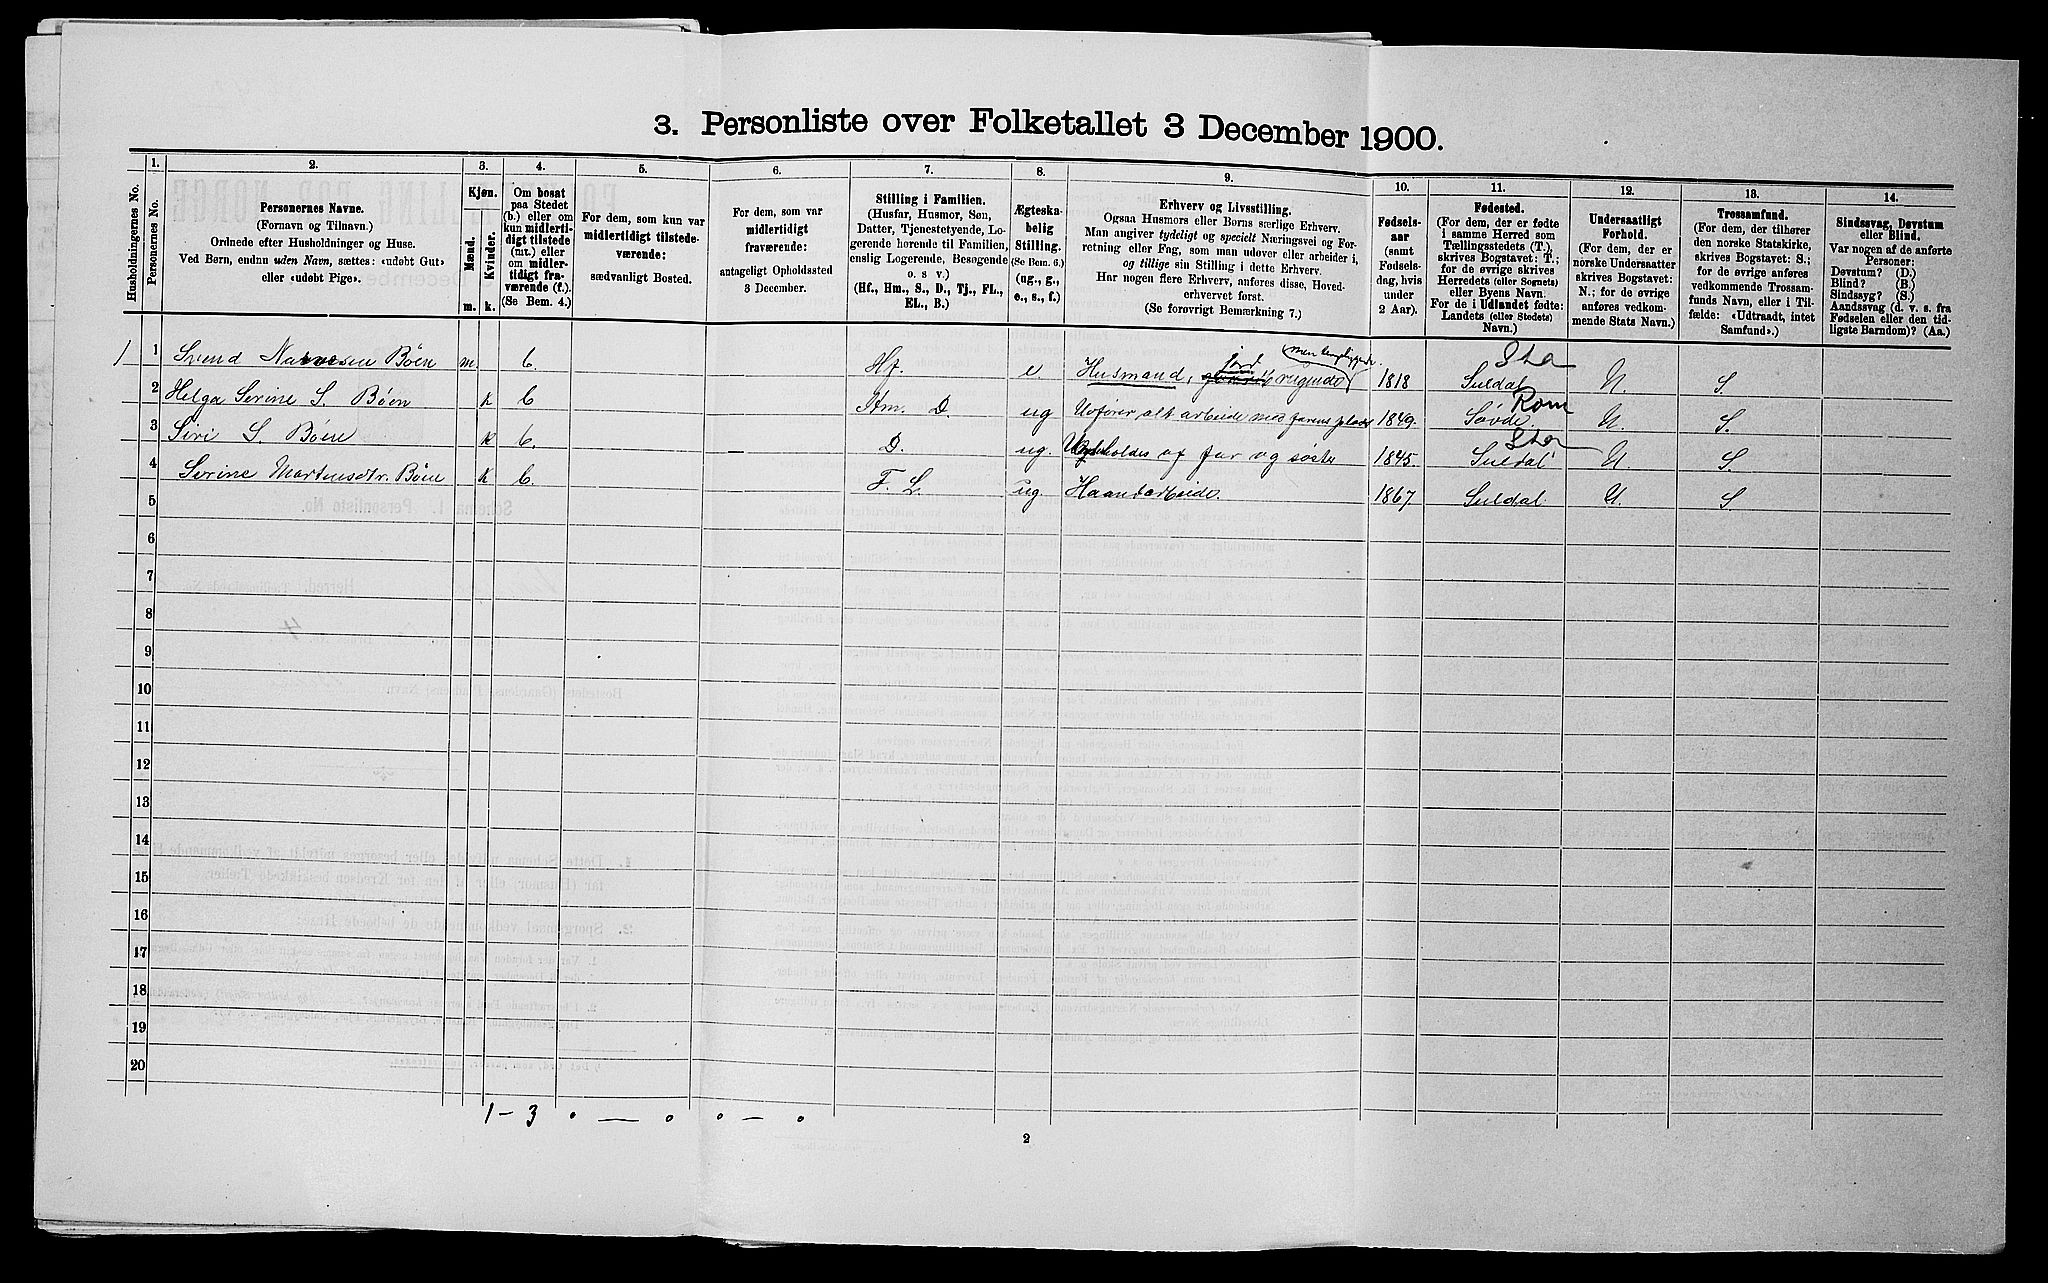 3. Personliste over Folketallet 3 December 1900.
Husholdningernes No.
1.
Personernes No.
2.
Personernes Navne.
(Fornavn og Tilnavn.)
Ordnede efter Husholdninger og Huse.
Ved Børn, endnu uden Navn, sættes: «udøbt Gut»
eller «udøbt Pige».
3.
Kjøn.
Mænd.
Kvinder.
m. k.
4.
Om bosat
paa Stedet
(b.) eller om
kun midlerti-
digt tilstede
(mt.) eller
om midler-
tidigt fra-
værende (f.).
(Se Bem. 4.)
5.
For dem, som kun var
midlertidigt tilstede-
værende:
sædvanligt Bosted.
6.
For dem, som var
midlertidigt
fraværende:
antageligt Opholdssted
3 December.
7.
Stilling i Familien.
(Husfar, Husmor, Søn,
Datter, Tjenestetyende, Lo-
gerende hørende til Familien,
enslig Logerende, Besøgende
o. s v.)
(Hf., Hm., S., D., Tj., FL.,
EL., B.)
8.
Ægteska-
belig
Stilling.
(Se Bem. 6.)
(ug., g.,
e., s., f.)
9.
Erhverv og Livsstilling.
Ogsaa Husmors eller Børns særlige Erhverv.
Man angiver tydeligt og specielt Næringsvei og For-
retning eller Fag, som man udøver eller arbeider i,
og tillige sin Stilling i dette Erhverv.
Har nogen flere Erhverv, anføres disse, Hoved-
erhvervet først.
(Se forøvrigt Bemærkning 7.)
10.
Fødsels-
aar
(samt
Fødsels-
dag, hvis
under
2 Aar).
11.
Fødested.
(For dem, der er fødte
i samme Herred som
Tællingsstedets (T.),
skrives Bogstavet: T.;
for de øvrige skrives
Herredets (eller Sognets)
eller Byens Navn.
For de i Udlandet fødte:
Landets (eller Stedets)
Navn.)
12.
Undersaatligt
Forhold.
(For dem, der er
norske Undersaatter
skrives Bogstavet:
N.; for de øvrige
anføres vedkom-
mende Stats Navn.)
13.
Trossamfund.
(For dem, der tilhører
den norske Statskirke,
skrives Bogstavet: S.;
for de øvrige anføres
vedkommende Trossam-
funds Navn, eller i Til-
fælde: «Udtraadt, intet
Samfund».)
14.
Sindssvag, Døvstum
eller Blind.
Var nogen af de anførte
Personer:
Døvstum? (D.)
Blind? (B.)
Sindssyg? (S.)
Aandssvag (d. v. s. fra
Fødselen eller den tid-
ligste Barndom)? (Aa.)
1 1 Svend Narvesen Bøen m. b. Hf. e. Husmand, jord 1818 Suldal Sta N. S.
2 Helga Serine S. Bøen k b Hm. D. ug Udfører alt arbeide med farens plads 1849. Søvde Rom N. S.
3 Siri S. Bøen k b. D. ug. af far og søster 1845. Suldal Sta N. S.
4 Serine Martinsdtr. Bøen k b. F. L. ug. Haandarbeide 1867. Suldal. N. S
5
6
7
8
9
10
11
12
13
14
15
16
17
18
19
20
1 - 3
2